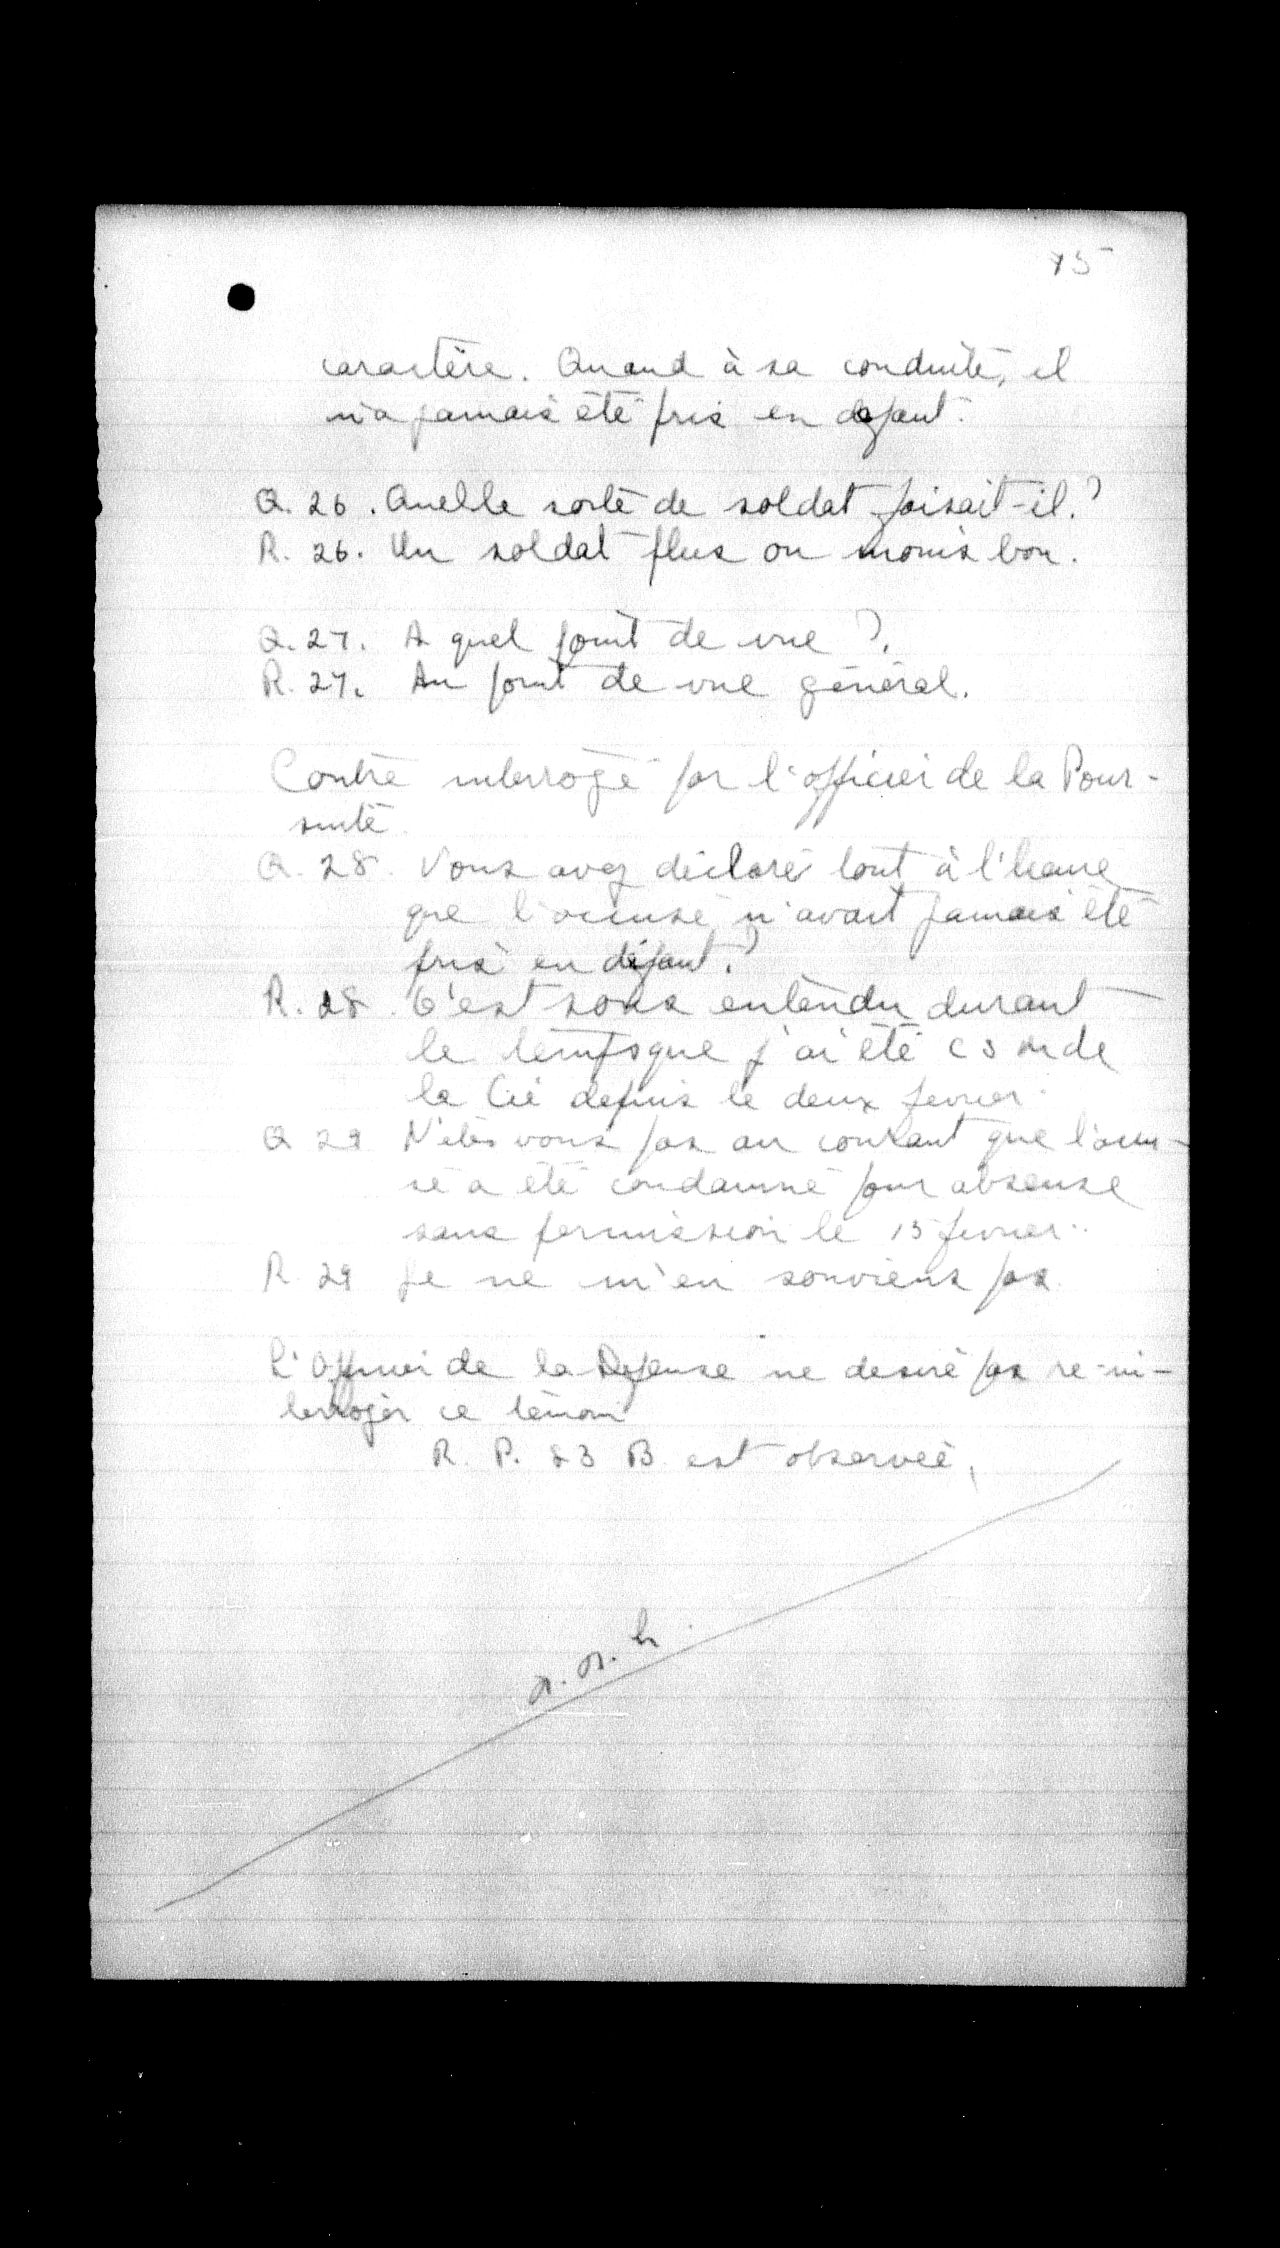 15
caractère. Quand à sa conduite, il
n'a jamais été pris en défaut.
Q. 26. Quelle sorte de soldat faisait-il?
R. 26. Un soldat plus ou moins bon.
Q. 27. A quel point de vue?
R. 27. Au point de vue général.
Contre interrogé par l'officier de la Pour-
suite.
Q. 28. Vous avez déclaré tout à l'heure
que l'accusé n'avait jamais été
pris en défaut?
R. 28. C'est sous entendu durant
le temps que j'ai été C S M de
la Cie depuis le deux fevrier.
Q 29 N'êtes vous pas au courant que l'accu-
sé a été condamné pour absense
sans permission le 15 fevrier.
R. 29 Je ne m'en souviens pas.
L'Officier de la Défense ne desire pas re-in-
terroger ce témoin
R. P. 83 B. est observée.